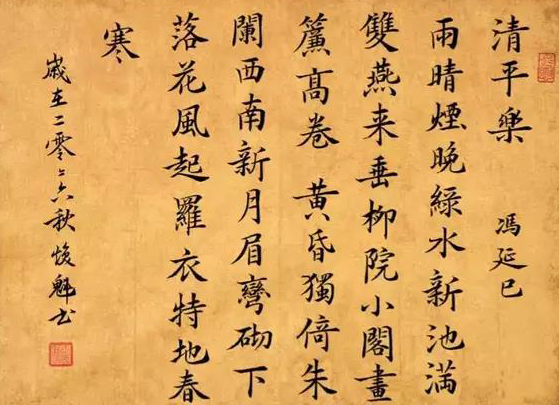 清平樂 馮延巳
雨晴煙晚綠水新池满
雙燕来垂柳院小閣畫
簾髙卷 黄昏獨倚朱
闌西南新月眉彎砌下
落花風起羅衣特地春
寒
歲在二零〻六秋 魁书